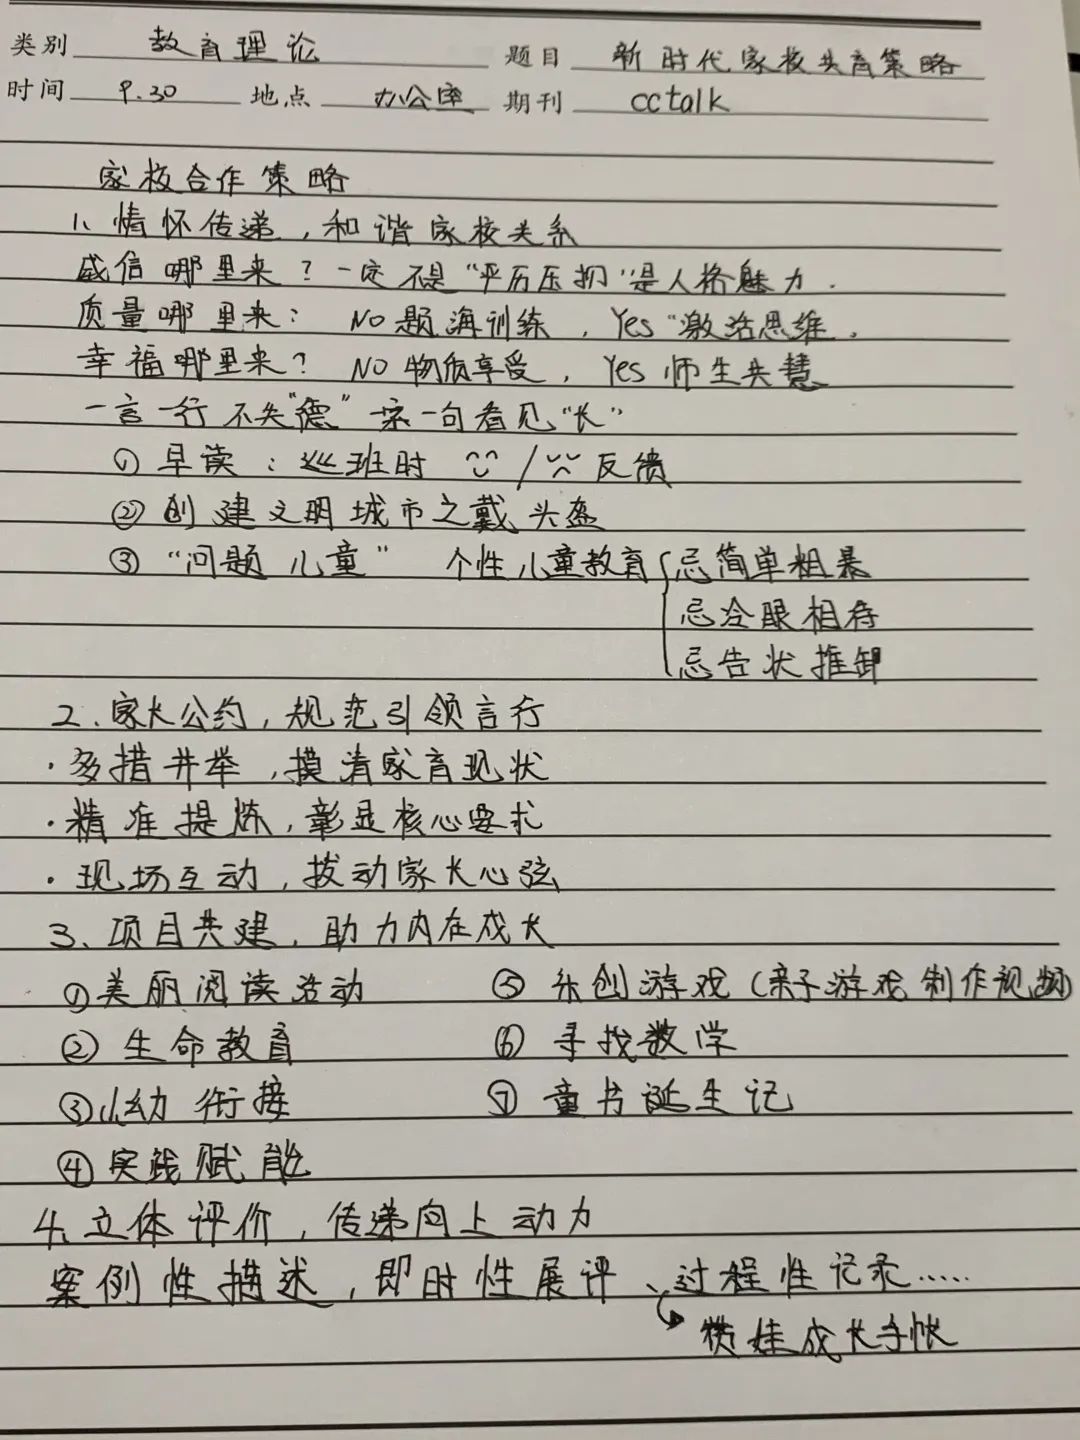 类别 教育理论 题目 新时代家校共育策略
时间 9.30 地点 办公室 期刊 cctalk
家校合作策略
1、情怀传递，和谐家校关系
威信哪里来？一定不是“平历压抑”是人格魅力．
质量哪里来： NO题海训练，Yes“激活思维．
幸福哪里来？ NO物质享受，Yes师生共慧
一言一行不失“德” 一句看见“长”
① 早读：巡班时 / 反馈
② 创建文明城市之戴头盔
③ “问题儿童” 个性儿童教育 忌简单粗暴
忌冷眼相待
忌告状推卸
2．家长公约，规范引领言行
·多措并举，摸清家育现状
·精准提炼，彰显核心要求
·现场互动，拨动家长心弦
3、项目共建，助力内在成长
①美丽阅读活动 ⑤ 乐创游戏（亲子游戏制作视频）
② 生命教育 ⑥ 寻找数学
③小幼衔接 ⑦ 童书诞生记
④实践赋能
4、立体评价，传递向上动力
案例性描述，即时性展评、过程性记录……
娃成长手帐